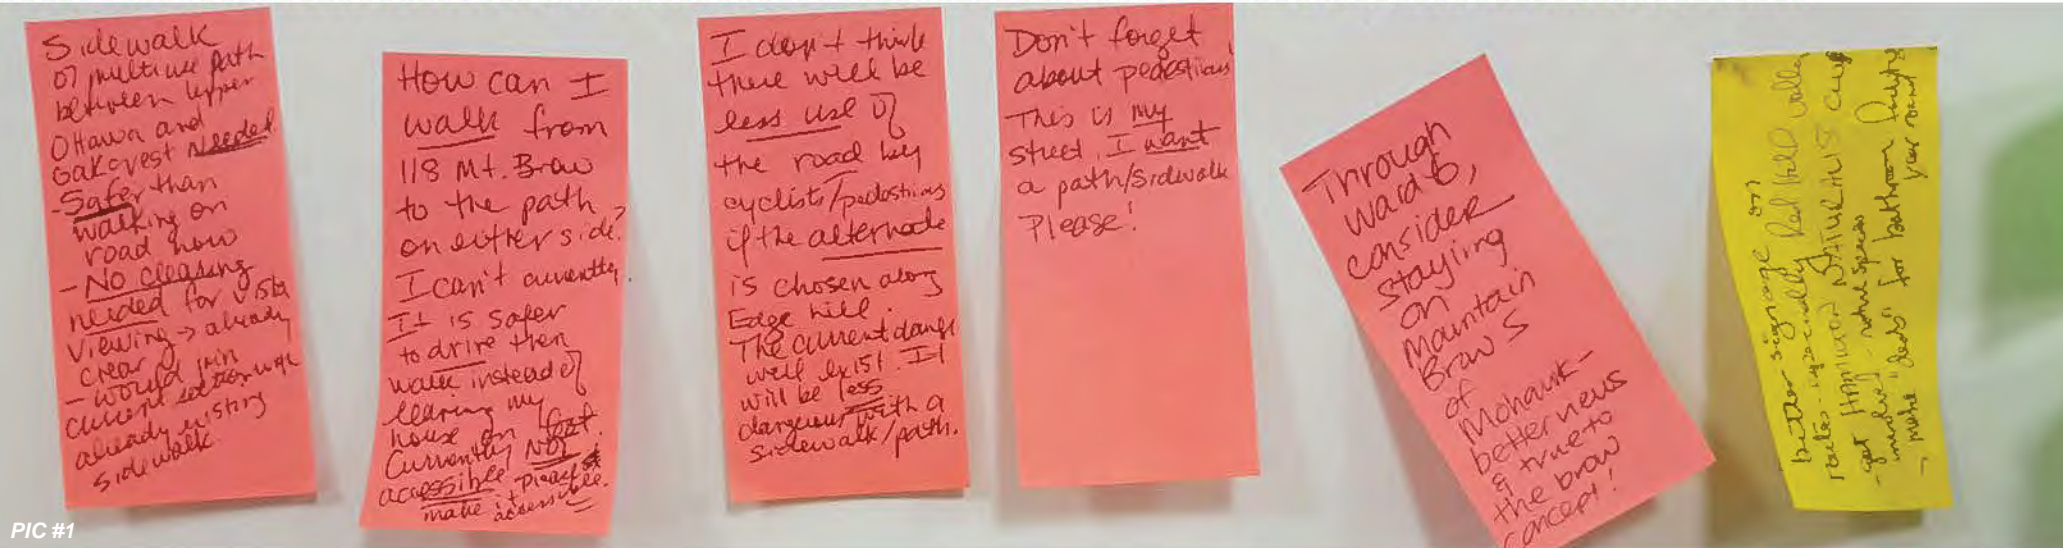 Sidewalk
or multiuse path
between Upper
Ottawa and
Oakcrest Needed.
- Safer than
walking on
road now
- No clearing
needed for vista
viewing → already
clear
- would join
current section with
already existing
sidewalk.
How can I
walk from
118 Mt. Brow
to the path
on either side?
I can't currently.
It is safer
to drive then
walk instead of
leaving my
house on foot.
Currently NOT
accessible please
make it accessible.
I don't think
there will be
less use of
the road by
cyclists/pedestrians
if the alternate
is chosen along
Edge hill.
The current danger
will exist. It
will be less
dangerous with a
sidewalk/path.
Don't forget
about pedestrians
This is my
street. I want
a path/sidewalk
Please!
Through
ward 6,
consider
staying
on
Mountain
Brow S
of
Mohawk -
better views
& true to
the brow
concept!
better signage on
routes - especially Red Hill Valley
- get HAMILTON NATURALIST CLUB
involved - species
- make for bathroom
year round
PIC #1